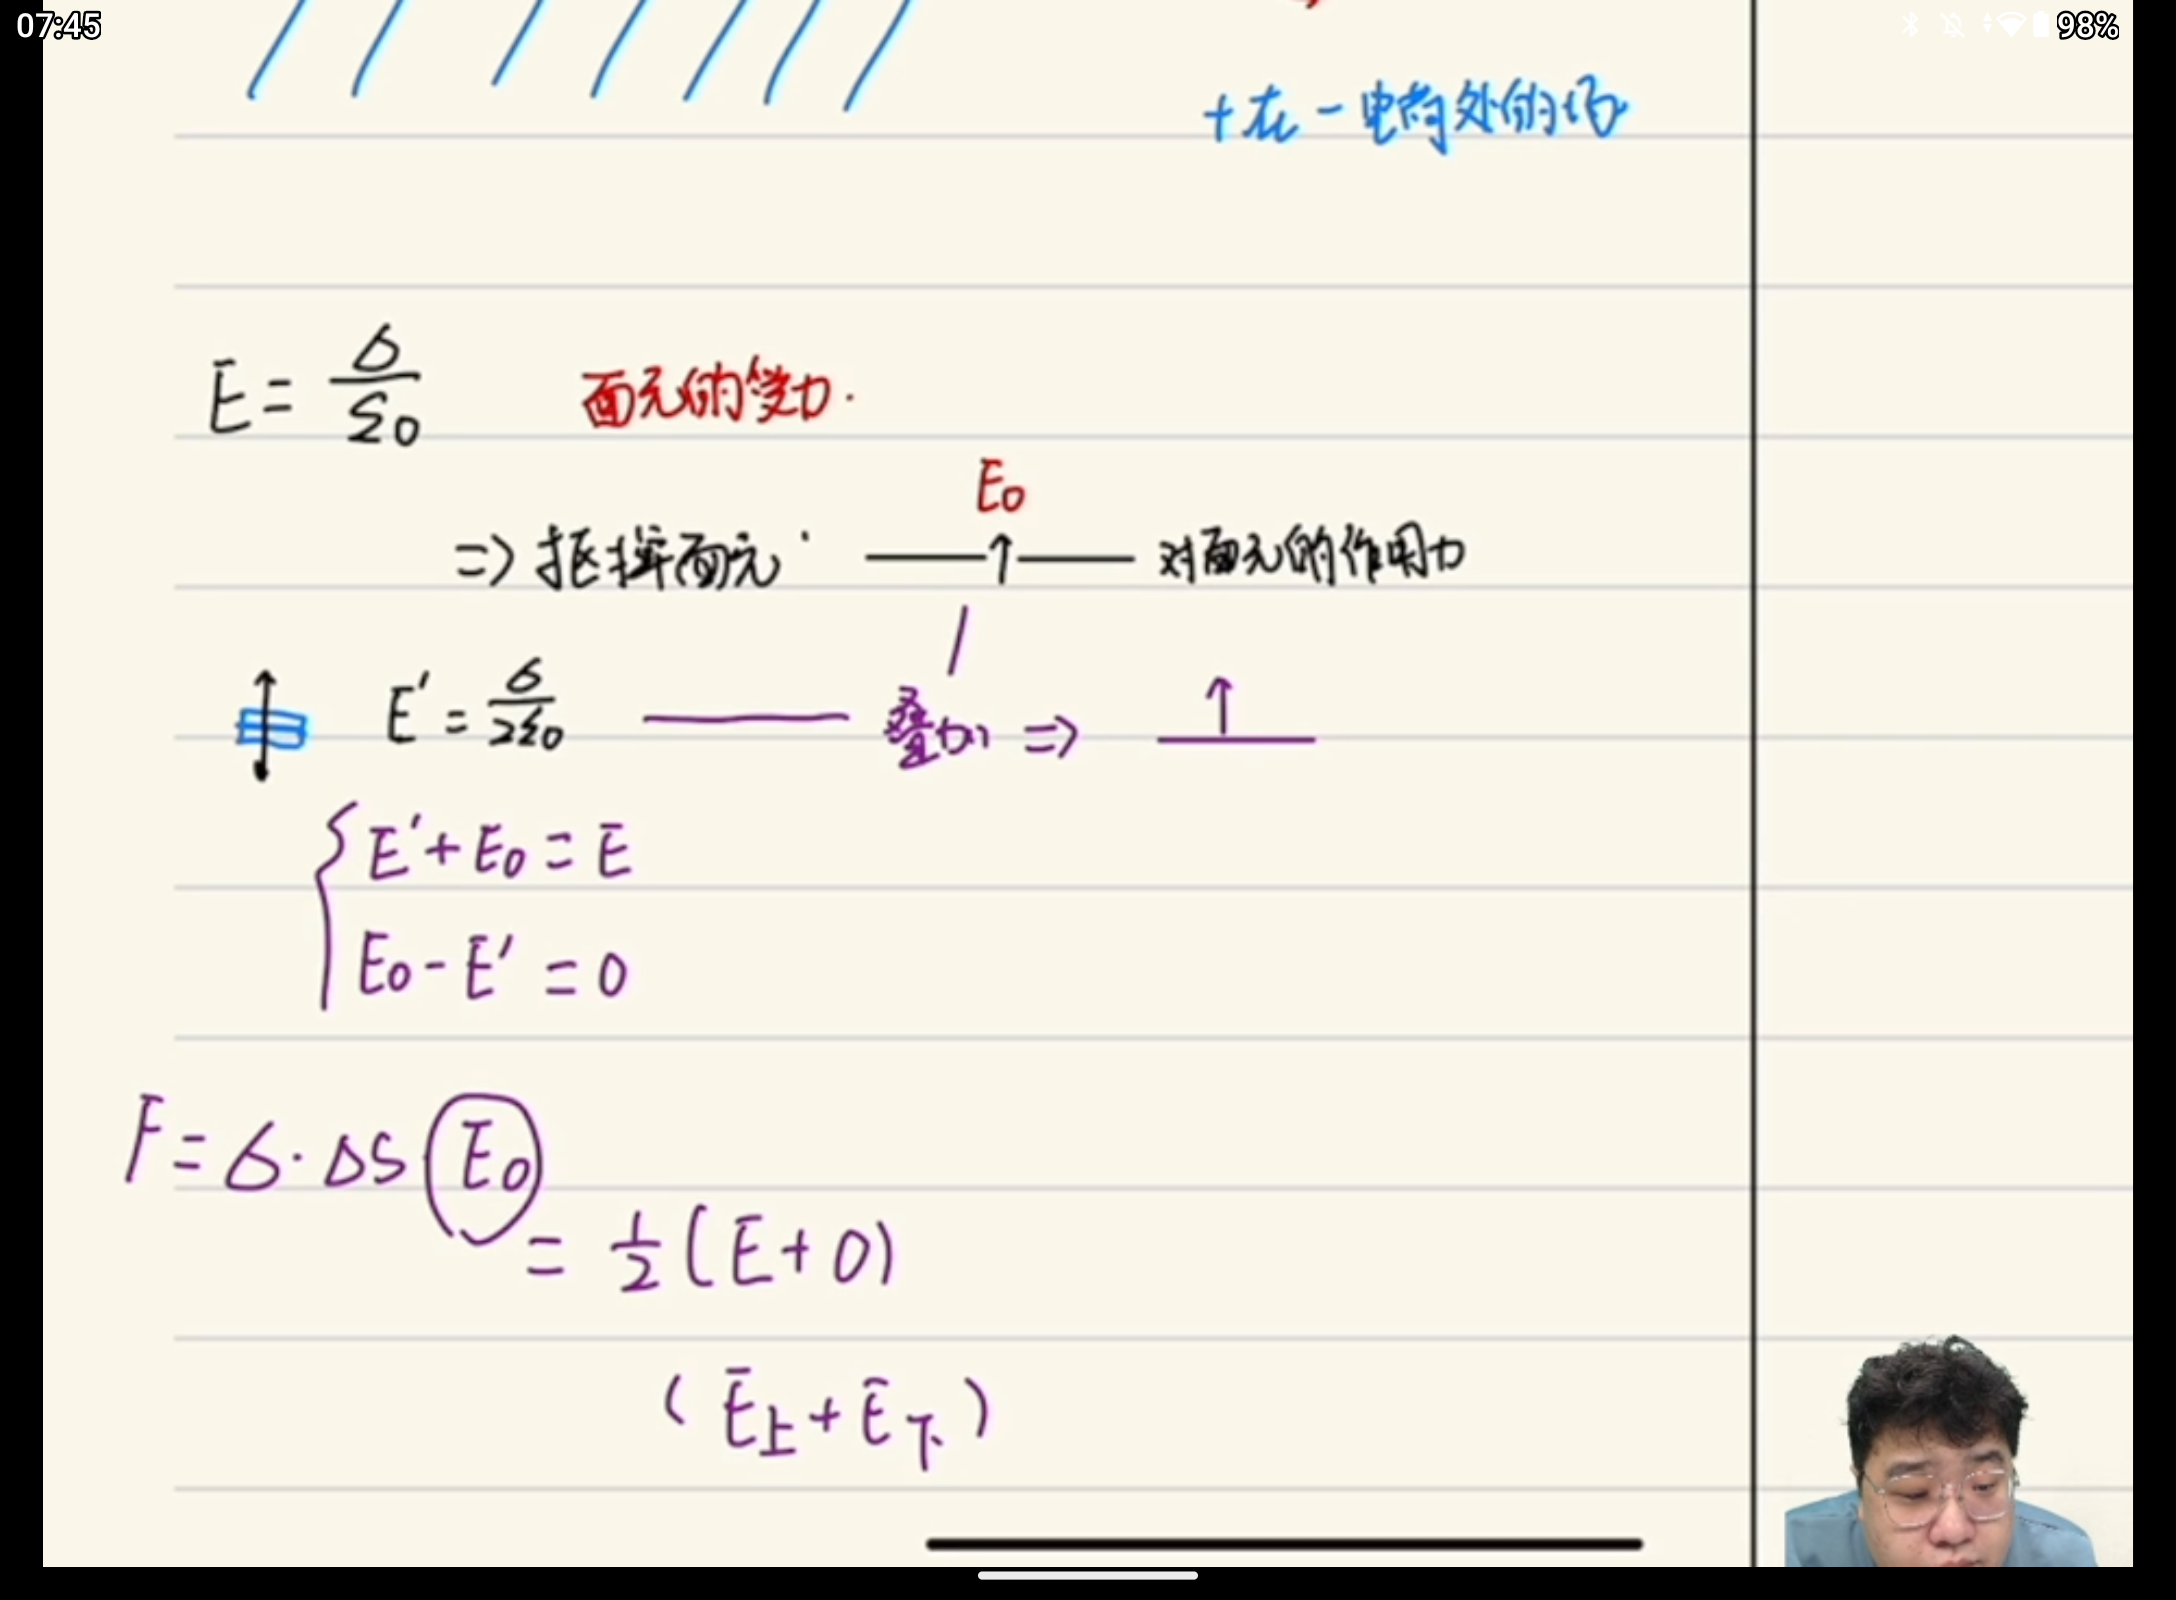 07:45 98%
+在-电荷处的场
E = σ/ε0 面元的受力.
E0
=> 抠掉面元 —↑— 对面元的作用力
E' = σ/2ε0 —— 叠加 => ↑
E' + E0 = E
E0 - E' = 0
F = σ·ΔS·E0
= 1/2 (E + 0)
(E上 + E下)